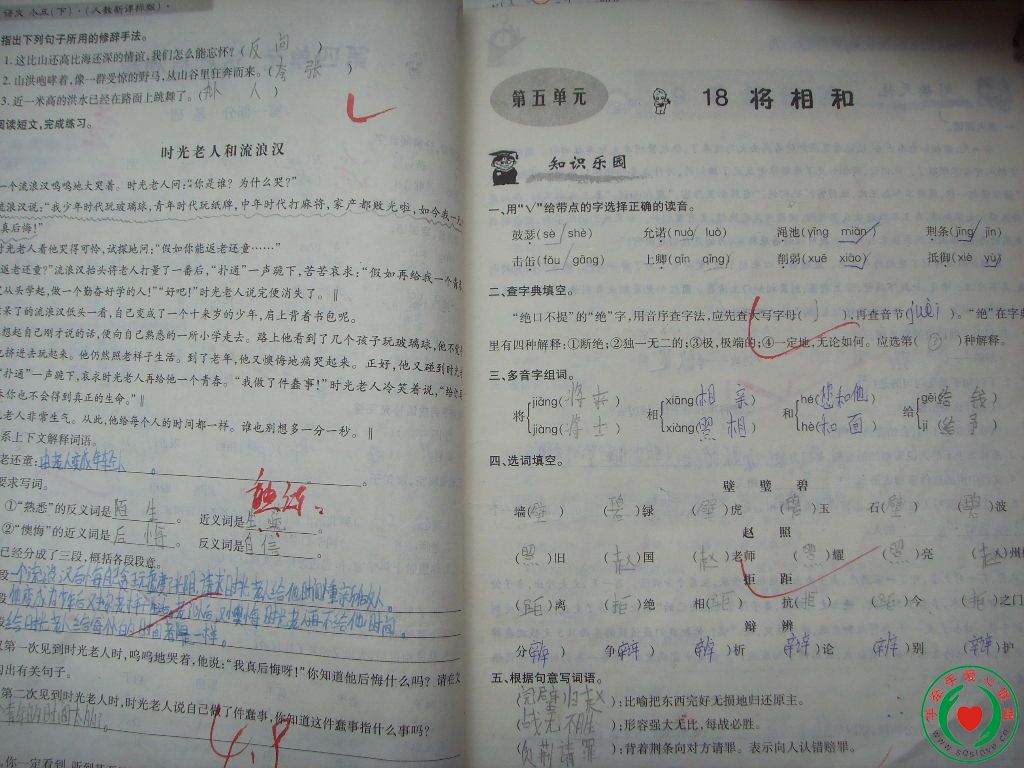 语文 小五(下)·(人教新课标版)·
指出下列句子所用的修辞手法。
1. 这比山还高比海还深的情谊,我们怎么能忘怀?(反问)
2. 山洪咆哮着,像一群受惊的野马,从山谷里狂奔而来。(夸张)
3. 近一米高的洪水已经在路面上跳舞了。(拟人)
阅读短文,完成练习。
时光老人和流浪汉
一个流浪汉呜呜地大哭着。时光老人问:“你是谁?为什么哭?”
流浪汉说:“我少年时代玩玻璃球,青年时代玩纸牌,中年时代打麻将,家产都败光啦,如今我一
真后悔!”
光老人看他哭得可怜,试探地问:“假如你能返老还童……”
返老还童?”流浪汉抬头将老人打量了一番后,“扑通”一声跪下,苦苦哀求:“假如再给我一个青
从头学起,做一个勤奋好学的人!”“好吧!”时光老人说完便消失了。‖
来了的流浪汉低头一看,自己变成了一个十来岁的少年,肩上背着书包呢。
想起自己刚才说的话,便向自己熟悉的一所小学走去。路上他看到了几个孩子玩玻璃球,他不
也挤进去玩起来。他仍然照老样子生活。到了老年,他又懊悔地痛哭起来。正好,他又碰到时
“扑通”一声跪下,哀求时光老人再给他一个青春。“我做了件蠢事!”时光老人冷笑着说,“给
你也不会得到真正的生命。”‖
老人非常生气。从此,他给每个人的时间都一样。谁也别想多一分一秒。‖
系上下文解释词语。
老还童:由老人变成年轻人。
要求写词。
①“熟悉”的反义词是陌生。 近义词是熟练。
②“懊悔”的近义词是后悔。 反义词是自信。
已经分成了三段,概括各段段意。
第一次见到时光老人时,呜呜地哭着,他说:“我真后悔呀!”你知道他后悔什么吗?请在文
出有关句子。
第二次见到时光老人时,时光老人说自己做了件蠢事,你知道这件蠢事指什么事吗?
4.9
第五单元
18 将相和
知识乐园
一、用“√”给带点的字选择正确的读音。
鼓瑟(sè shè) 允诺(nuò luò) 渑池(yǐng miǎn) 荆条(jīng jīn)
击缶(fǒu gāng) 上卿(qīn qīng) 削弱(xuē xiāo) 抵御(xiè yù)
二、查字典填空。
“绝口不提”的“绝”字,用音序查字法,应先查大写字母(J),再查音节(jué)。“绝”在字
里有四种解释:①断绝;②独一无二的;③极,极端的;④一定地,无论如何。应选第( )种解释。
三、多音字组词。
将 jiāng(将来) 相 xiāng(相亲) 和 hé(您和他) 给 gěi(给钱)
jiàng(将士) xiàng(照相) huó(和面) jǐ(给予)
四、选词填空。
壁 璧 碧
墙(壁) (碧)绿 (壁)虎 (碧)玉 石(壁) (碧)波
赵 照
(照)旧 (赵)国 (赵)老师 (照)耀 (照)亮 (赵)州
拒 距
(距)离 (拒)绝 相(距) 抗(拒) (距)今 (拒)之门
辩 辨
分(辨) 争(辩) (辨)析 (辩)论 (辨)别 (辩)护
五、根据句意写词语。
(完璧归赵):比喻把东西完好无损地归还原主。
(战无不胜):形容强大无比,每战必胜。
(负荆请罪):背着荆条向对方请罪。表示向人认错赔罪。